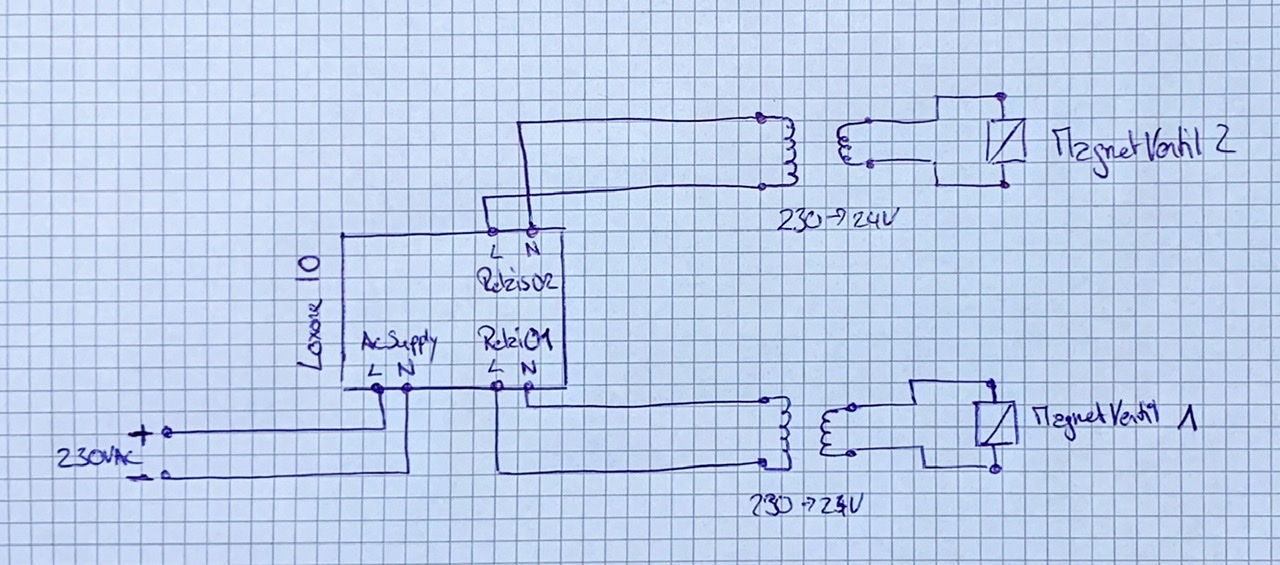 MagnetVentil 2
230→24V
L N
Relais02
Loxone IO
AcSupply
L N
Relai01
L N
MagnetVentil 1
+
230VAC
-
230→24V